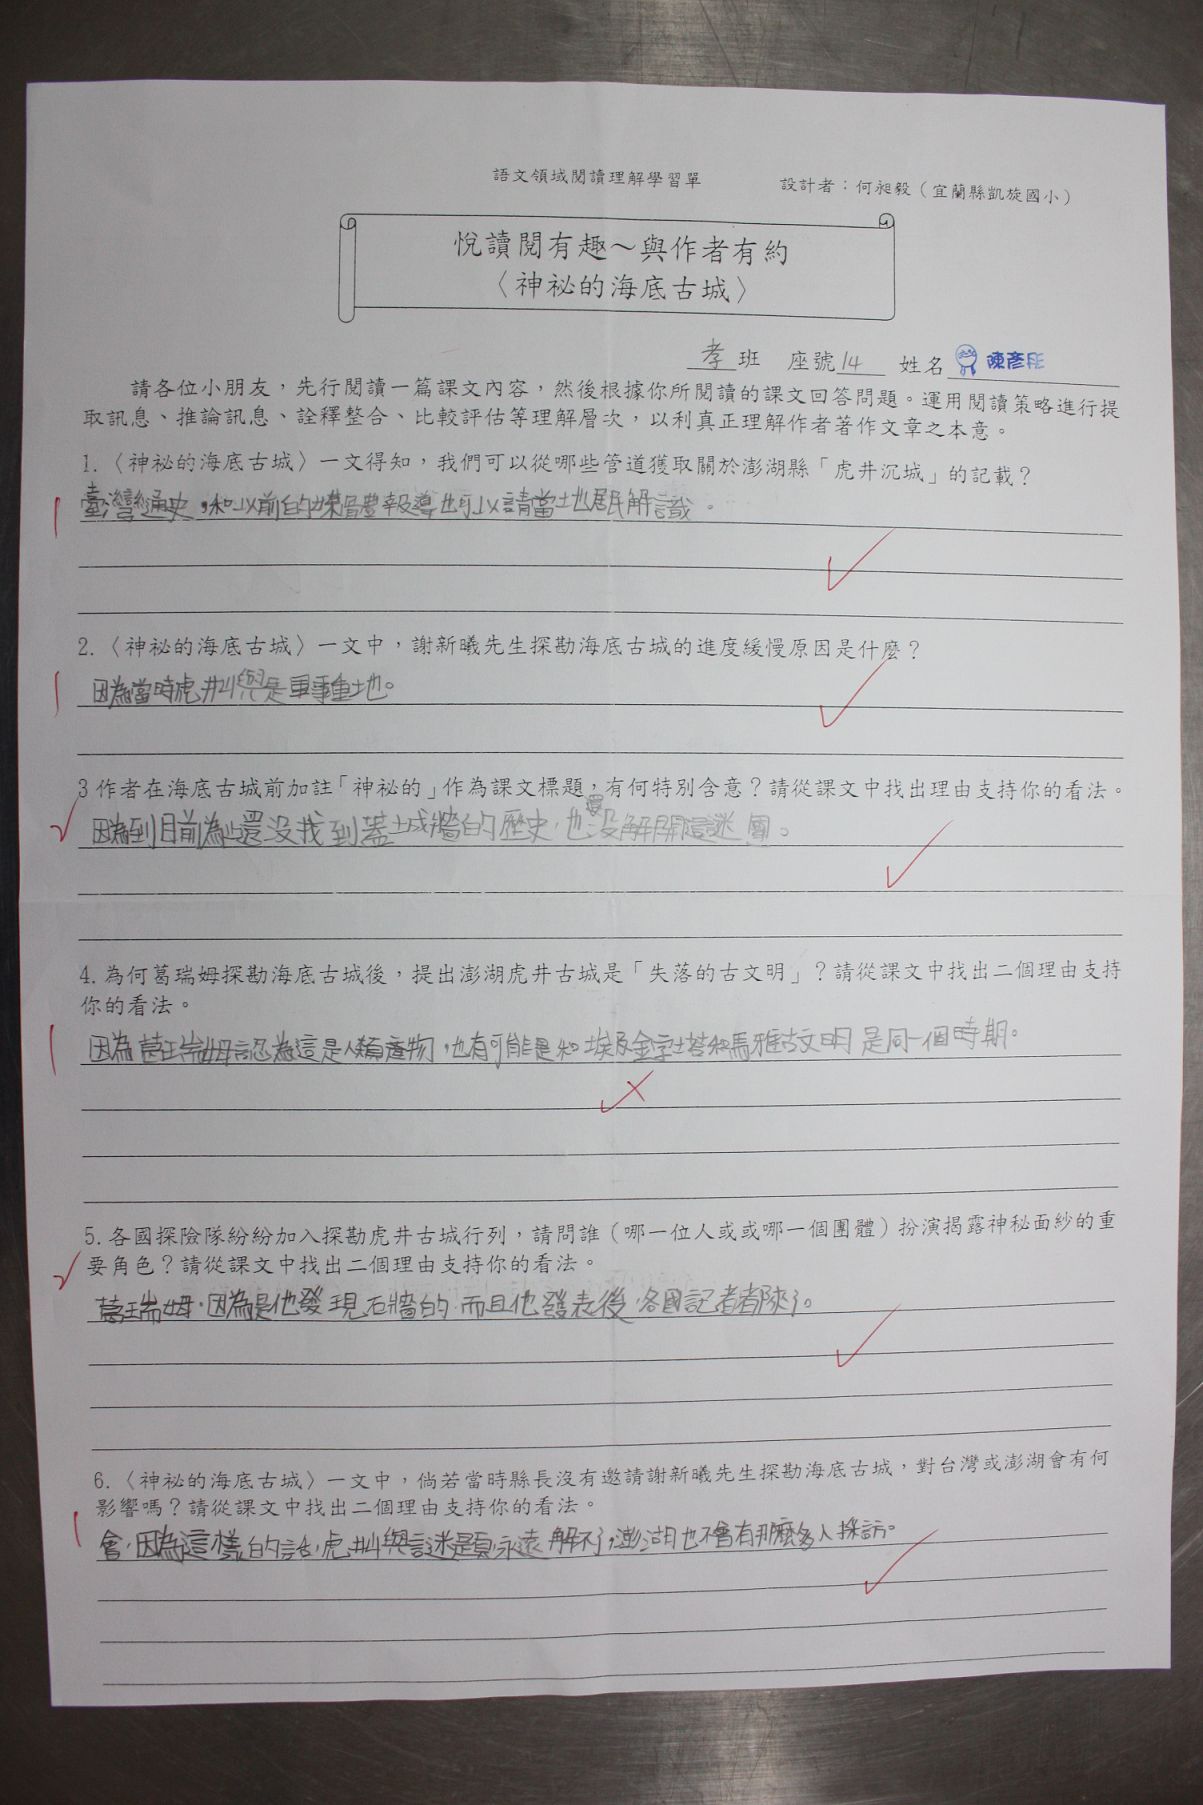 語文領域閱讀理解學習單 設計者：何昶毅（宜蘭縣凱旋國小）
悅讀閱有趣～與作者有約
〈神祕的海底古城〉
孝班 座號14 姓名 陳彥彤
請各位小朋友，先行閱讀一篇課文內容，然後根據你所閱讀的課文回答問題。運用閱讀策略進行提
取訊息、推論訊息、詮釋整合、比較評估等理解層次，以利真正理解作者著作文章之本意。
1.〈神祕的海底古城〉一文得知，我們可以從哪些管道獲取關於澎湖縣「虎井沉城」的記載？
臺灣通史，和以前的媒體報導也可以請當地居民解識。
2.〈神祕的海底古城〉一文中，謝新曦先生探勘海底古城的進度緩慢原因是什麼？
因為當時虎井嶼是軍事重地。
3作者在海底古城前加註「神祕的」作為課文標題，有何特別含意？請從課文中找出理由支持你的看法。
因為到目前為止還沒找到蓋城牆的歷史，也還沒解開這謎團。
4.為何葛瑞姆探勘海底古城後，提出澎湖虎井古城是「失落的古文明」？請從課文中找出二個理由支持
你的看法。
因為葛瑞姆認為這是人類產物，也有可能是和埃及金字塔和馬雅古文明是同一個時期。
5.各國探險隊紛紛加入探勘虎井古城行列，請問誰（哪一位人或或哪一個團體）扮演揭露神秘面紗的重
要角色？請從課文中找出二個理由支持你的看法。
葛瑞姆，因為是他發現石牆的，而且他發表後，各國記者都來了。
6.〈神祕的海底古城〉一文中，倘若當時縣長沒有邀請謝新曦先生探勘海底古城，對台灣或澎湖會有何
影響嗎？請從課文中找出二個理由支持你的看法。
會，因為這樣的話，虎井嶼謎題永遠解不了，澎湖也不會有那麼多人採訪。